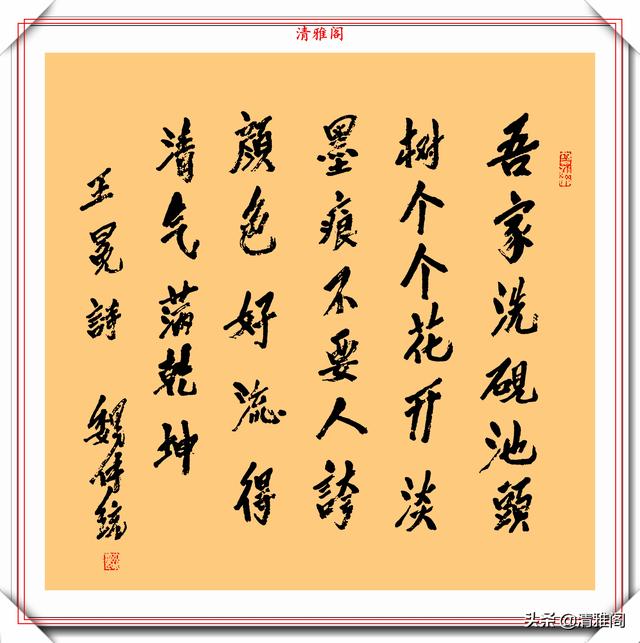 清雅阁
吾家洗硯池頭
树个个花开淡
墨痕不要人誇
顔色好流得
清气满乾坤
王冕詩 魏传統
头条@清雅阁